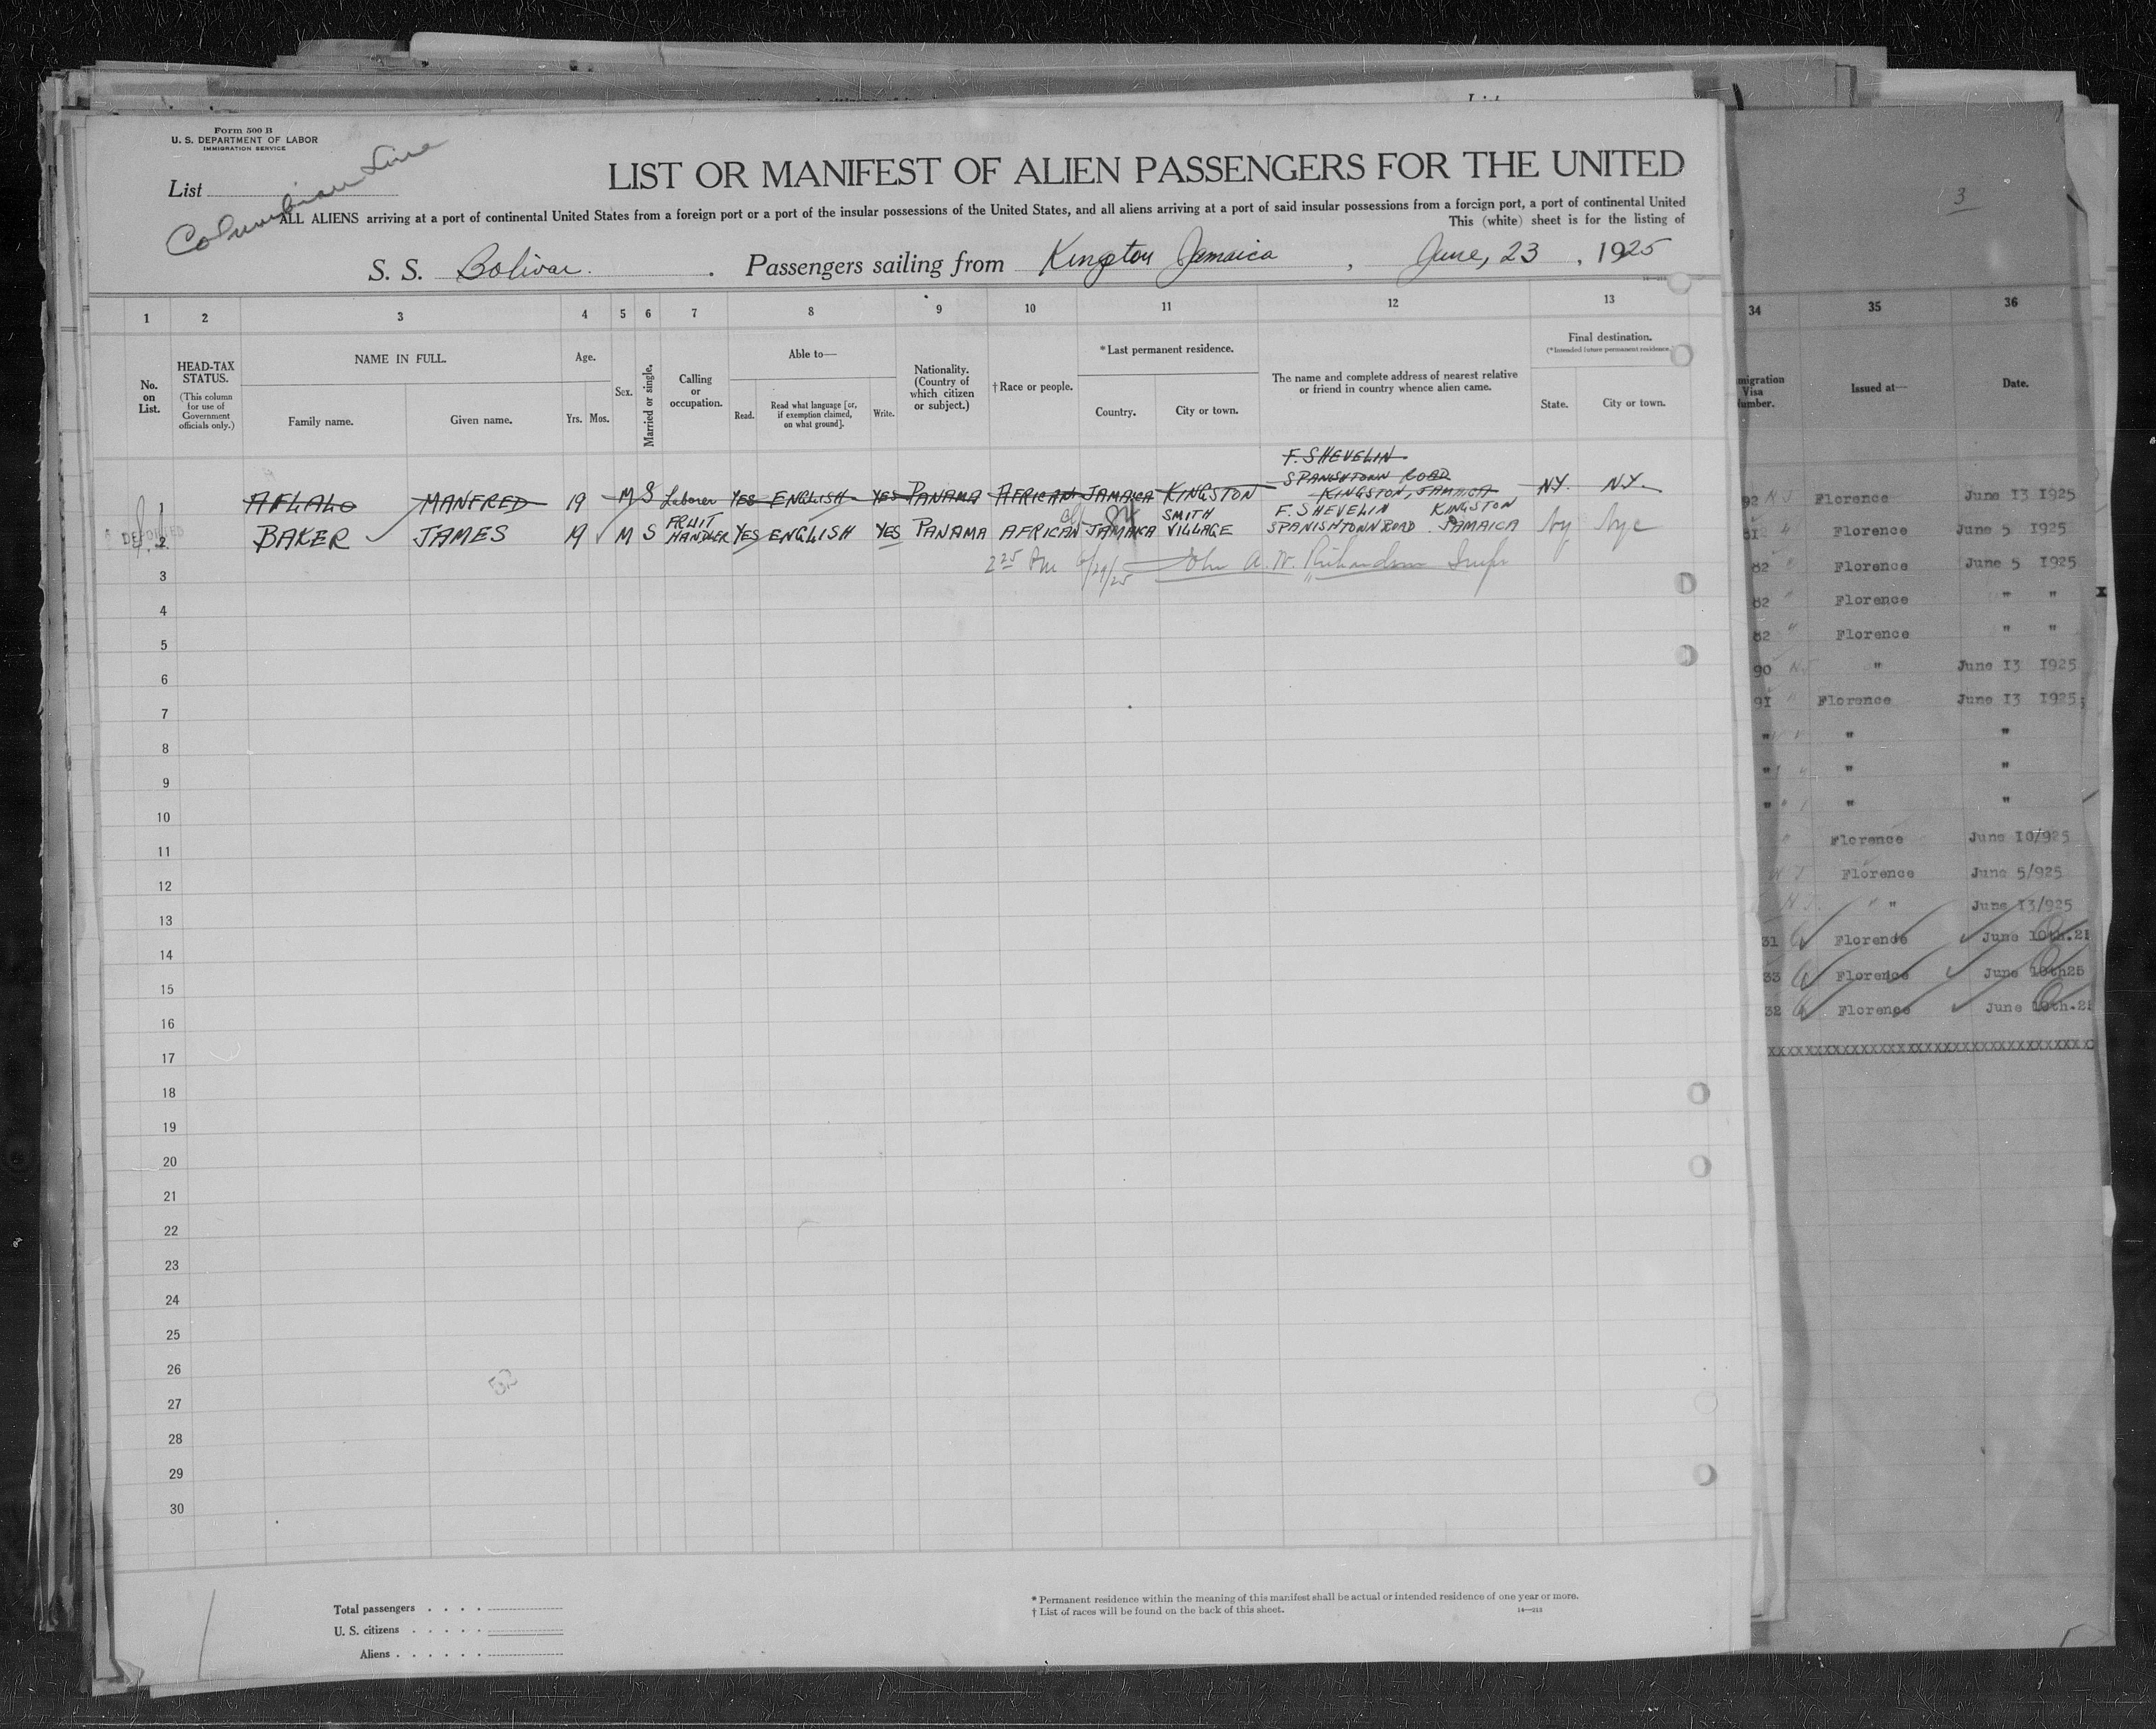 Form 500 B
U. S. DEPARTMENT OF LABOR
IMMIGRATION SERVICE
List
Columbian Line
LIST OR MANIFEST OF ALIEN PASSENGERS FOR THE UNITED
ALL ALIENS arriving at a port of continental United States from a foreign port or a port of the insular possessions of the United States, and all aliens arriving at a port of said insular possessions from a foreign port, a port of continental United
This (white) sheet is for the listing of
S. S. Bolivar. Passengers sailing from Kingston Jamaica, June, 23, 1925
1 2 3 4 5 6 7 8 9 10 11 12 13
No. on List.
HEAD-TAX STATUS.
(This column for use of Government officials only.)
NAME IN FULL.
Family name. Given name.
Age.
Yrs. Mos.
Sex.
Married or single.
Calling or occupation.
Able to—
Read. Read what language [or, if exemption claimed, on what ground]. Write.
Nationality. (Country of which citizen or subject.)
†Race or people.
*Last permanent residence.
Country. City or town.
The name and complete address of nearest relative or friend in country whence alien came.
Final destination.
(*Intended future permanent residence.)
State. City or town.
1 AFLALO MANFRED 19 M S Laborer YES ENGLISH YES PANAMA AFRICAN JAMAICA KINGSTON F. SHEVELIN SPANISHTOWN ROAD KINGSTON, JAMAICA N.Y. N.Y.
DEPORTED
2 BAKER JAMES 19 M S FRUIT HANDLER YES ENGLISH YES PANAMA AFRICAN JAMAICA SMITH VILLAGE F. SHEVELIN KINGSTON SPANISHTOWN ROAD JAMAICA Ny Nyc
2 25 Pm 6/29/25 John A. W. Richardson Insp
3
4
5
6
7
8
9
10
11
12
13
14
15
16
17
18
19
20
21
22
23
24
25
26
27
28
29
30
52
Total passengers
U. S. citizens
Aliens
* Permanent residence within the meaning of this manifest shall be actual or intended residence of one year or more.
† List of races will be found on the back of this sheet.
14—213
3
34 35 36
migration Visa Number. Issued at— Date.
92 N J Florence June 13 1925
Florence June 5 1925
82 " Florence June 5 1925
82 " Florence " "
82 " Florence " "
90 " June 13 1925
91 " Florence June 13 1925
" " "
" " "
" " "
" Florence June 10/925
Florence June 5/925
" " June 13/925
31 Florence June 10th.2
33 Florence June 10th25
32 Florence June 10th.2
xxxxxxxxxxxxxxxxxxxxxxxxxxxxxxxxxxx